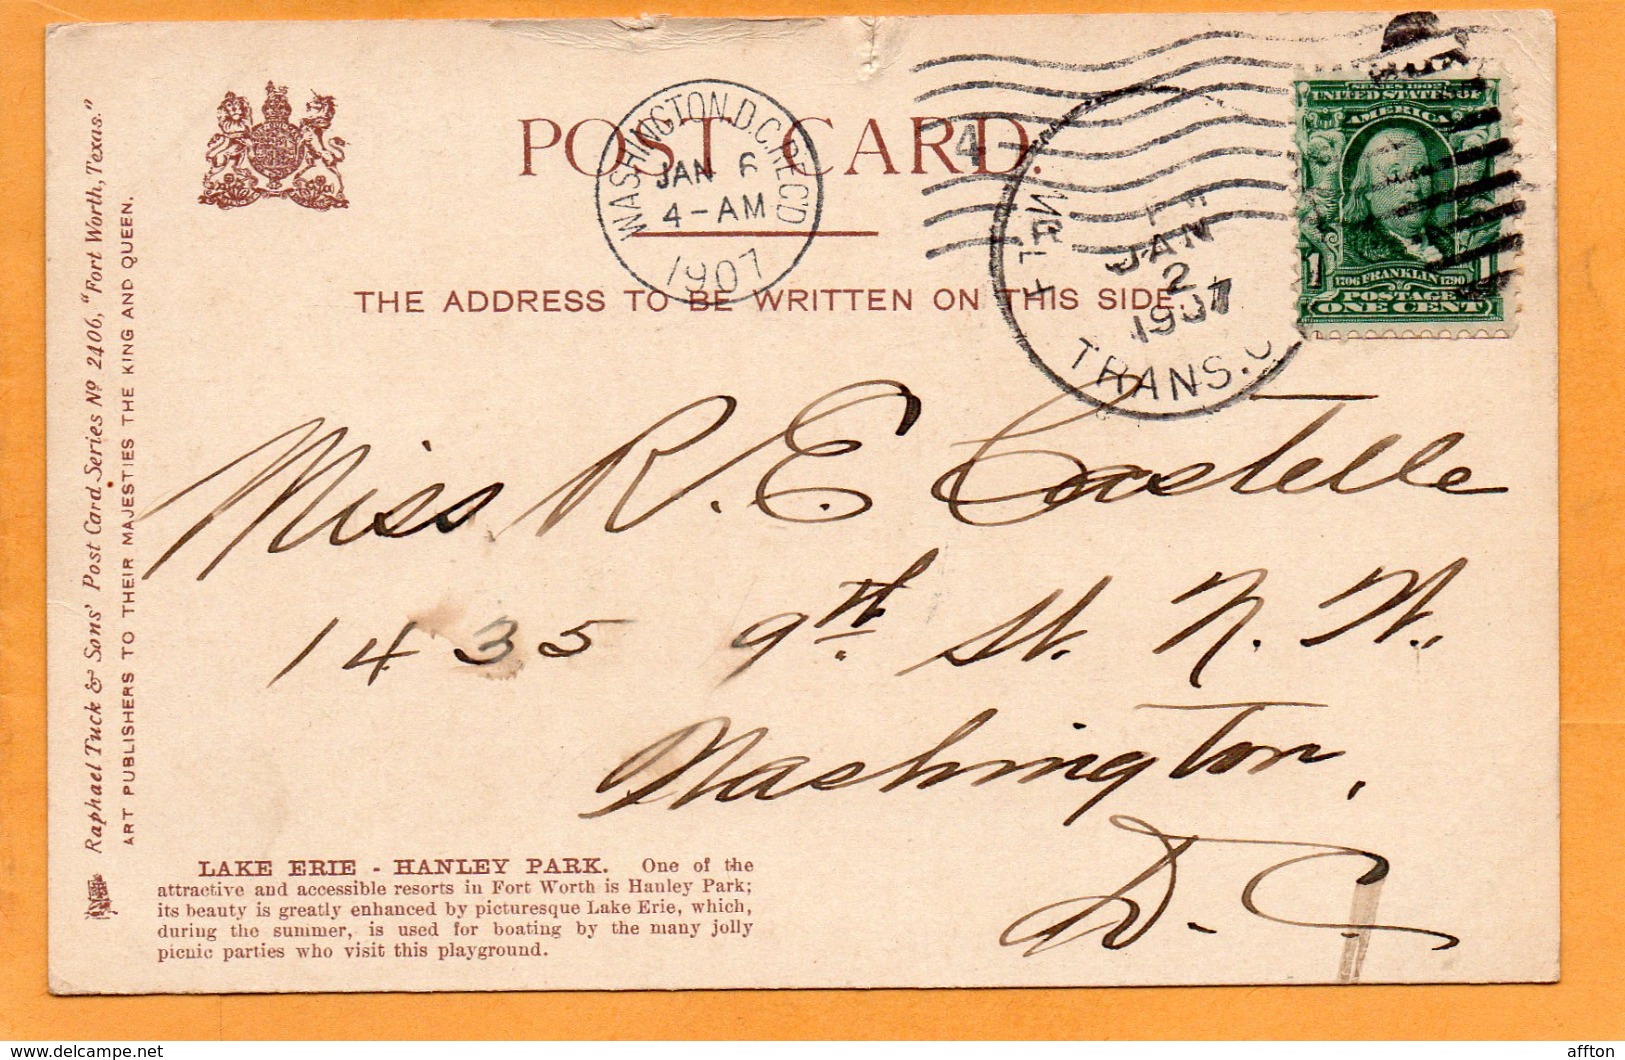 POST CARD.
WASHINGTON, D.C. REC'D
JAN 6
4-AM
1907
4
JAN
2
1907
TRANS.
SERIES 1902
UNITED STATES OF
AMERICA
1 1
1706 FRANKLIN 1790
POSTAGE
ONE CENT
THE ADDRESS TO BE WRITTEN ON THIS SIDE
Miss R. E. Castelle
1435 9th St. N. W.,
Washington,
D. C.
LAKE ERIE - HANLEY PARK. One of the
attractive and accessible resorts in Fort Worth is Hanley Park;
its beauty is greatly enhanced by picturesque Lake Erie, which,
during the summer, is used for boating by the many jolly
picnic parties who visit this playground.
Raphael Tuck & Sons' Post Card Series No 2406, "Fort Worth, Texas."
ART PUBLISHERS TO THEIR MAJESTIES THE KING AND QUEEN.
© delcampe.net
affton